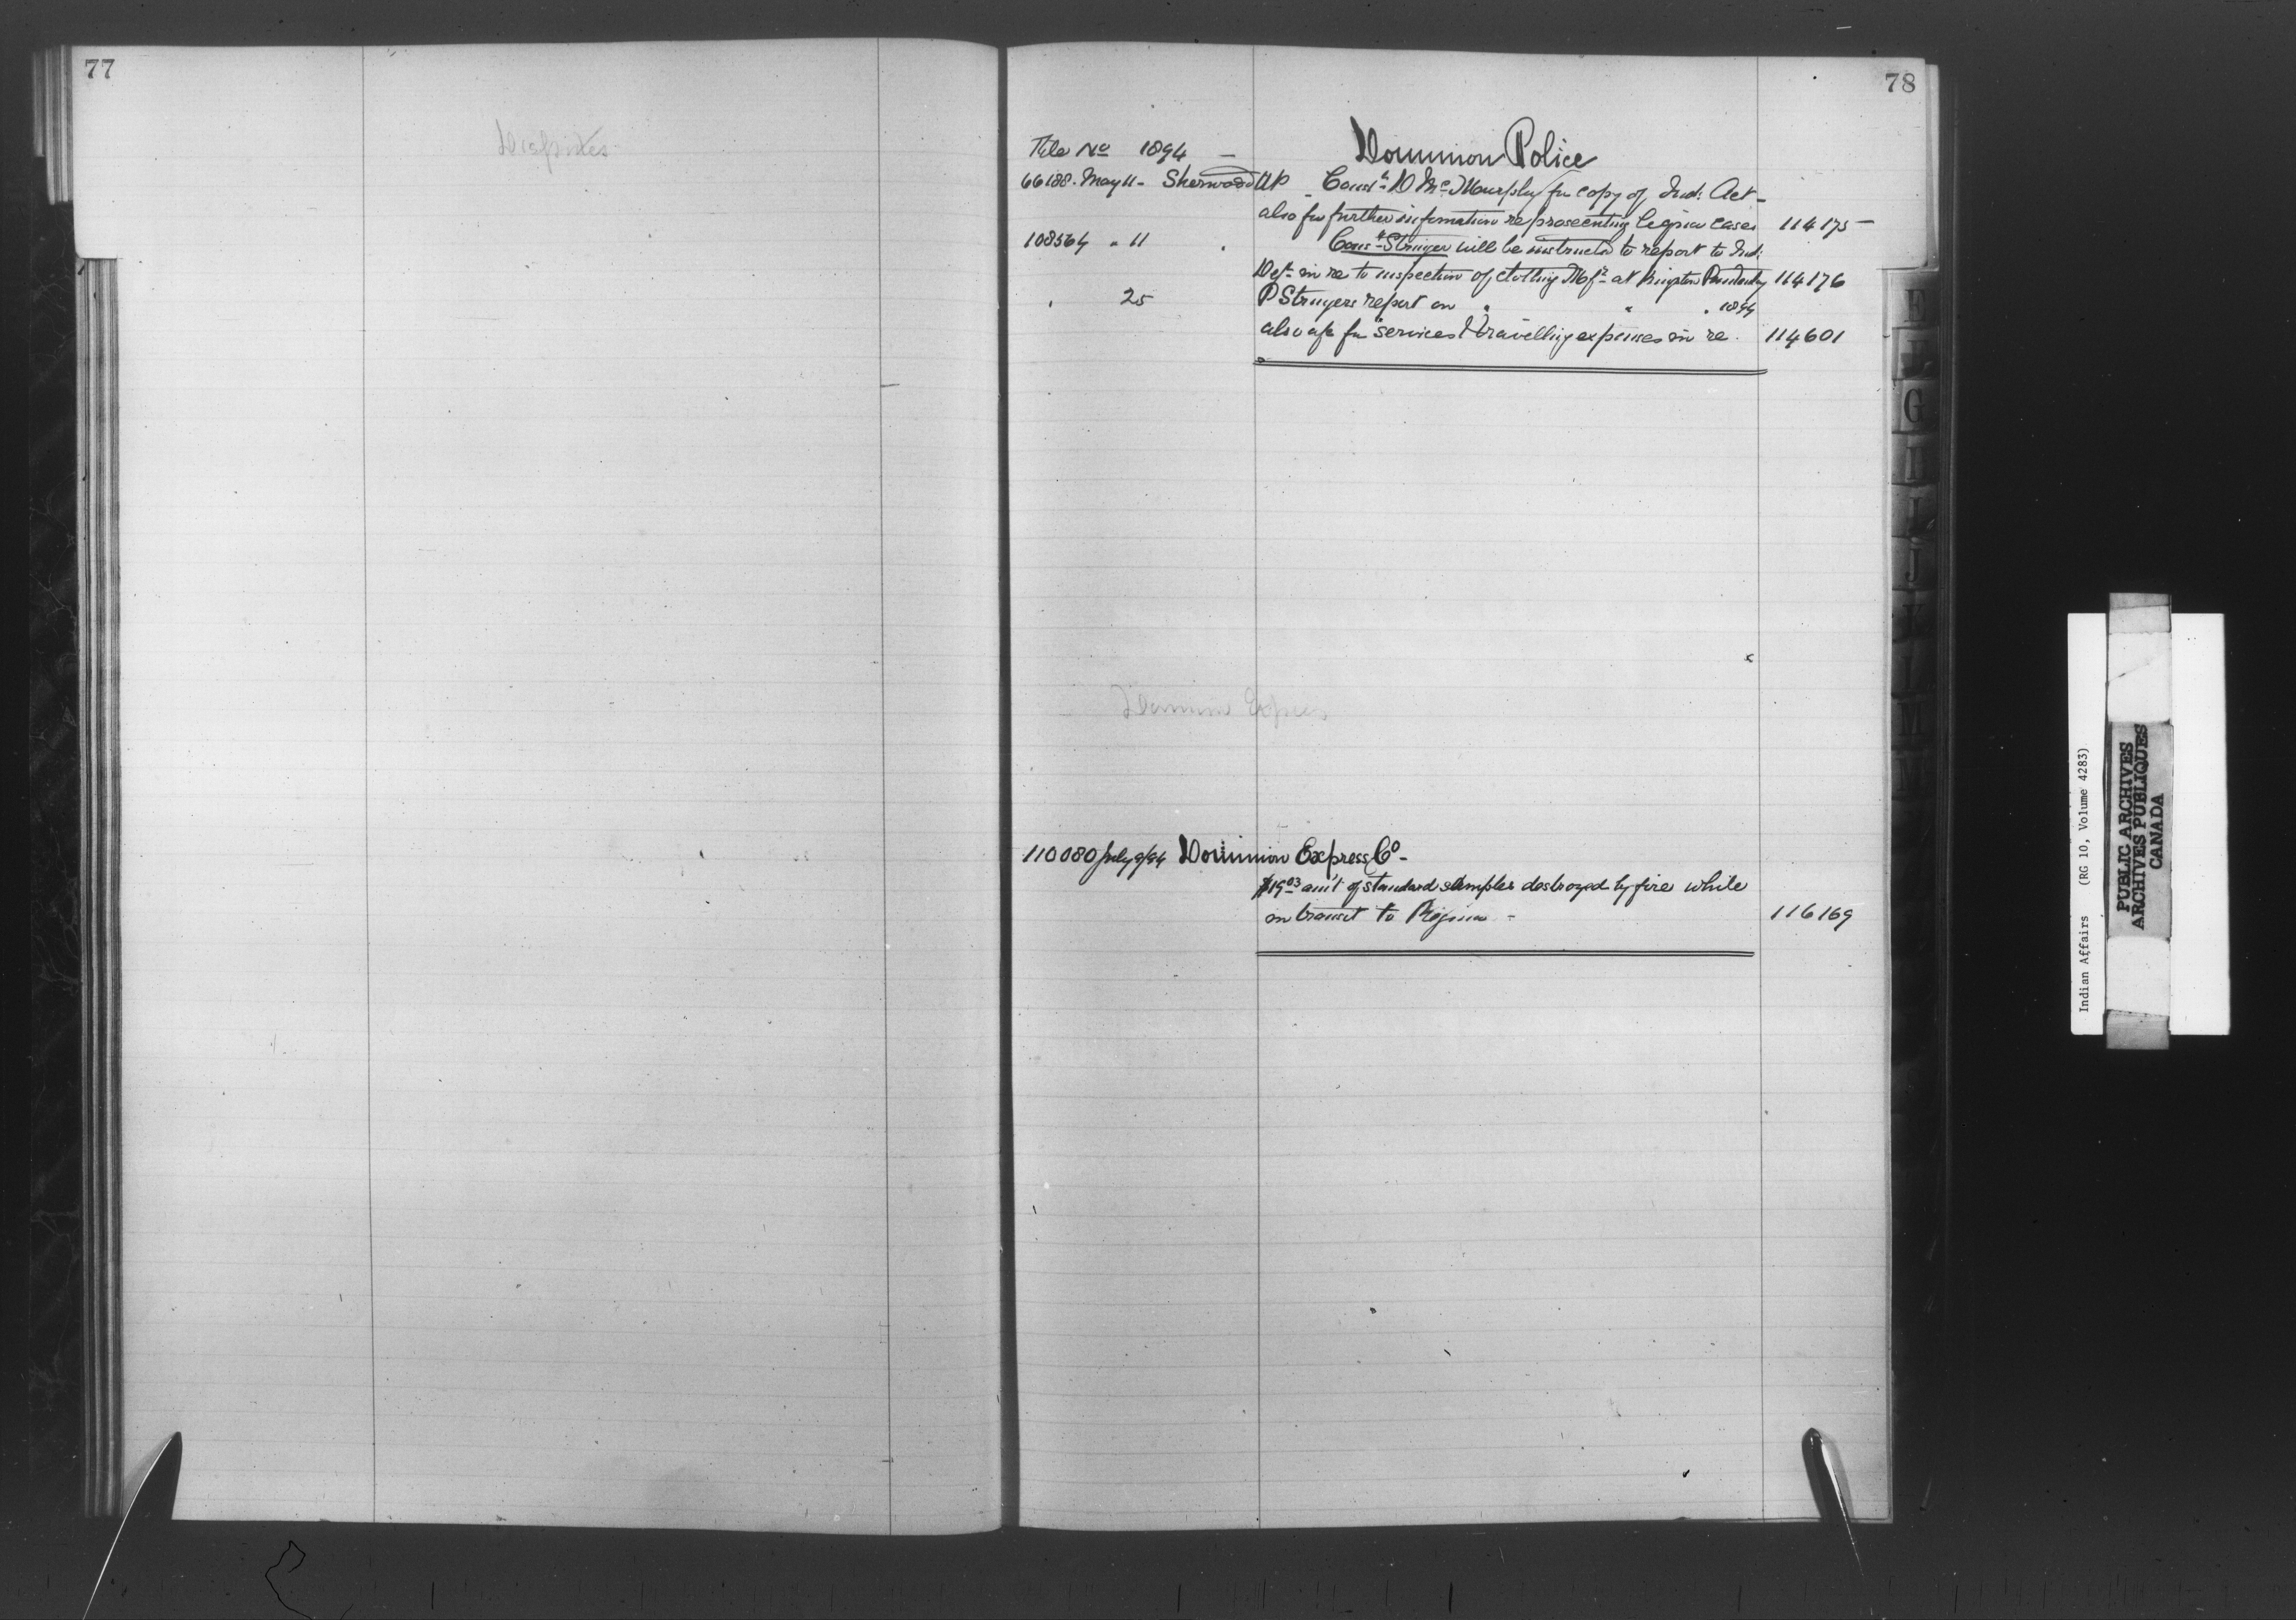 77
Disputes
78
File No 1894 — Dominion Police
66188. May 11 - Sherwood AP - Const. D Mc Murphy for copy of Ind: Act -
also for further information re prosecuting liquor cases 114175 —
108564 " 11 " Const. Struger will be instructed to report to Ind:
Dept. in re to inspection of clothing Mfr. at Kingston Penitentiary 114176
" 25 P Strugers report on " " " 1894
also a/c for services & travelling expenses in re. 114601
Dominion Express
110080 July 9/94 Dominion Express Co -
$19.03 am't of standard samples destroyed by fire while
in transit to Regina - 116169
E
G
H
I
J
K
L
M
N
Indian Affairs (RG 10, Volume 4283)
PUBLIC ARCHIVES
ARCHIVES PUBLIQUES
CANADA